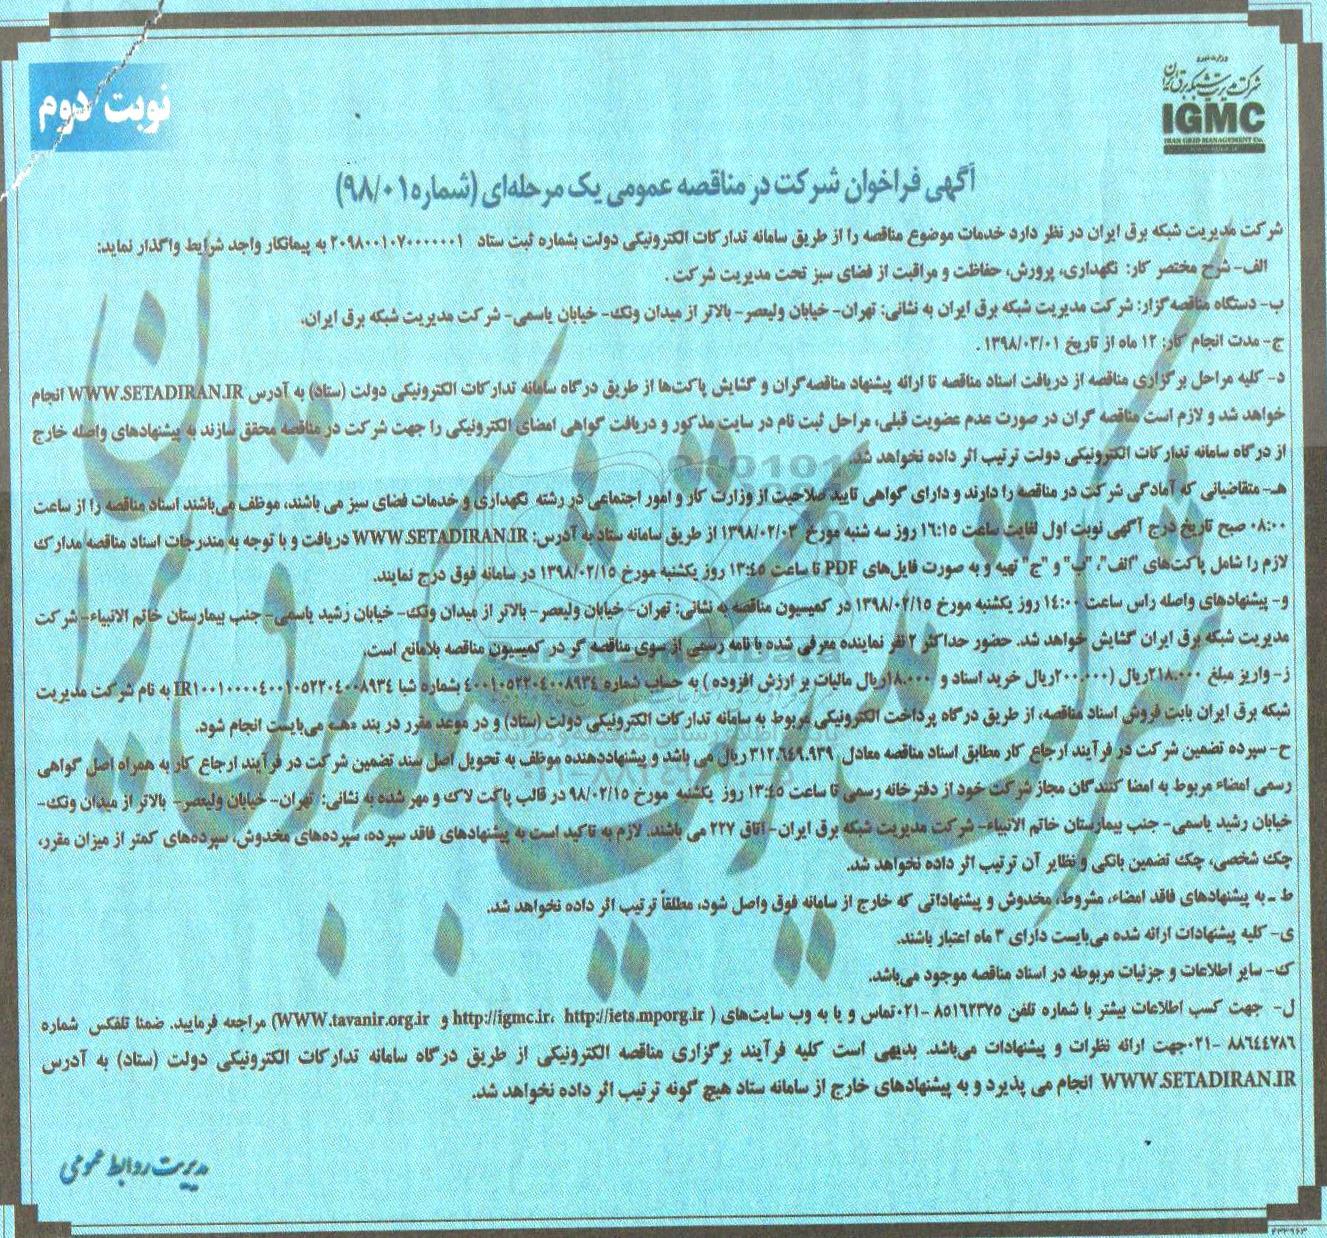 وزارت نیرو
شرکت مدیریت شبکه برق ایران
IGMC
IRAN GRID MANAGEMENT Co.
نوبت دوم
آگهی فراخوان شرکت در مناقصه عمومی یک مرحله‌ای (شماره ۹۸/۰۱)
شرکت مدیریت شبکه برق ایران در نظر دارد خدمات موضوع مناقصه را از طریق سامانه تدارکات الکترونیکی دولت بشماره ثبت ستاد ۲۰۹۸۰۰۱۰۷۰۰۰۰۰۰۱ به پیمانکار واجد شرایط واگذار نماید:
الف- شرح مختصر کار: نگهداری، پرورش، حفاظت و مراقبت از فضای سبز تحت مدیریت شرکت .
ب- دستگاه مناقصه‌گزار: شرکت مدیریت شبکه برق ایران به نشانی: تهران- خیابان ولیعصر- بالاتر از میدان ونک- خیابان یاسمی- شرکت مدیریت شبکه برق ایران.
ج- مدت انجام کار: ۱۲ ماه از تاریخ ۱۳۹۸/۰۳/۰۱ .
د- کلیه مراحل برگزاری مناقصه از دریافت اسناد مناقصه تا ارائه پیشنهاد مناقصه‌گران و گشایش پاکت‌ها از طریق درگاه سامانه تدارکات الکترونیکی دولت (ستاد) به آدرس WWW.SETADIRAN.IR انجام
خواهد شد و لازم است مناقصه گران در صورت عدم عضویت قبلی، مراحل ثبت نام در سایت مذکور و دریافت گواهی امضای الکترونیکی را جهت شرکت در مناقصه محقق سازند به پیشنهادهای واصله خارج
از درگاه سامانه تدارکات الکترونیکی دولت ترتیب اثر داده نخواهد شد.
هـ- متقاضیانی که آمادگی شرکت در مناقصه را دارند و دارای گواهی تایید صلاحیت از وزارت کار و امور اجتماعی در رشته نگهداری و خدمات فضای سبز می باشند، موظف می‌باشند اسناد مناقصه را از ساعت
۰۸:۰۰ صبح تاریخ درج آگهی نوبت اول لغایت ساعت ۱۶:۱۵ روز سه شنبه مورخ ۱۳۹۸/۰۲/۰۳ از طریق سامانه ستاد به آدرس: WWW.SETADIRAN.IR دریافت و با توجه به مندرجات اسناد مناقصه مدارک
لازم را شامل پاکت‌های "الف"، "ب" و "ج" تهیه و به صورت فایل‌های PDF تا ساعت ۱۳:٤٥ روز یکشنبه مورخ ۱۳۹۸/۰۲/۱۵ در سامانه فوق درج نمایند.
و- پیشنهادهای واصله راس ساعت ۱٤:۰۰ روز یکشنبه مورخ ۱۳۹۸/۰۲/۱۵ در کمیسیون مناقصه به نشانی: تهران- خیابان ولیعصر- بالاتر از میدان ونک- خیابان رشید یاسمی- جنب بیمارستان خاتم الانبیاء- شرکت
مدیریت شبکه برق ایران گشایش خواهد شد. حضور حداکثر ۲ نفر نماینده معرفی شده با نامه رسمی از سوی مناقصه گر در کمیسیون مناقصه بلامانع است.
ز- واریز مبلغ ۲۱۸.۰۰۰ریال (۲۰۰.۰۰۰ریال خرید اسناد و ۱۸.۰۰۰ریال مالیات بر ارزش افزوده) به حساب شماره ٤۰۰۱۰۵۲۲۰٤۰۰۸۹۳٤ بشماره شبا IR۱۰۰۱۰۰۰۰٤۰۰۱۰۵۲۲۰٤۰۰۸۹۳٤ به نام شرکت مدیریت
شبکه برق ایران بابت فروش اسناد مناقصه، از طریق درگاه پرداخت الکترونیکی مربوط به سامانه تدارکات الکترونیکی دولت (ستاد) و در موعد مقرر در بند «هـ» می‌بایست انجام شود.
ح- سپرده تضمین شرکت در فرآیند ارجاع کار مطابق اسناد مناقصه معادل ۳۱۲.٦٤۹.۹۳۹ریال می باشد و پیشنهاددهنده موظف به تحویل اصل سند تضمین شرکت در فرآیند ارجاع کار به همراه اصل گواهی
رسمی امضاء مربوط به امضا کنندگان مجاز شرکت خود از دفترخانه رسمی تا ساعت ۱۳:٤٥ روز یکشنبه مورخ ۹۸/۰۲/۱۵ در قالب پاکت لاک و مهر شده به نشانی: تهران- خیابان ولیعصر- بالاتر از میدان ونک-
خیابان رشید یاسمی- جنب بیمارستان خاتم الانبیاء- شرکت مدیریت شبکه برق ایران- اتاق ۲۲۷ می باشند. لازم به تاکید است به پیشنهادهای فاقد سپرده، سپرده‌های مخدوش، سپرده‌های کمتر از میزان مقرر،
چک شخصی، چک تضمین بانکی و نظایر آن ترتیب اثر داده نخواهد شد.
ط ـ به پیشنهادهای فاقد امضاء، مشروط، مخدوش و پیشنهاداتی که خارج از سامانه فوق واصل شود، مطلقاً ترتیب اثر داده نخواهد شد.
ی- کلیه پیشنهادات ارائه شده می‌بایست دارای ۳ ماه اعتبار باشند.
ک- سایر اطلاعات و جزئیات مربوطه در اسناد مناقصه موجود می‌باشد.
ل- جهت کسب اطلاعات بیشتر با شماره تلفن ۸۵۱٦۲۳۷۵ -۰۲۱تماس و یا به وب سایت‌های ( http://igmc.ir، http://iets.mporg.ir و WWW.tavanir.org.ir) مراجعه فرمایید. ضمنا تلفکس شماره
۸۸٦٤٤۷۸٦ -۰۲۱جهت ارائه نظرات و پیشنهادات می‌باشد. بدیهی است کلیه فرآیند برگزاری مناقصه الکترونیکی از طریق درگاه سامانه تدارکات الکترونیکی دولت (ستاد) به آدرس
WWW.SETADIRAN.IR انجام می پذیرد و به پیشنهادهای خارج از سامانه ستاد هیچ گونه ترتیب اثر داده نخواهد شد.
مدیریت روابط عمومی